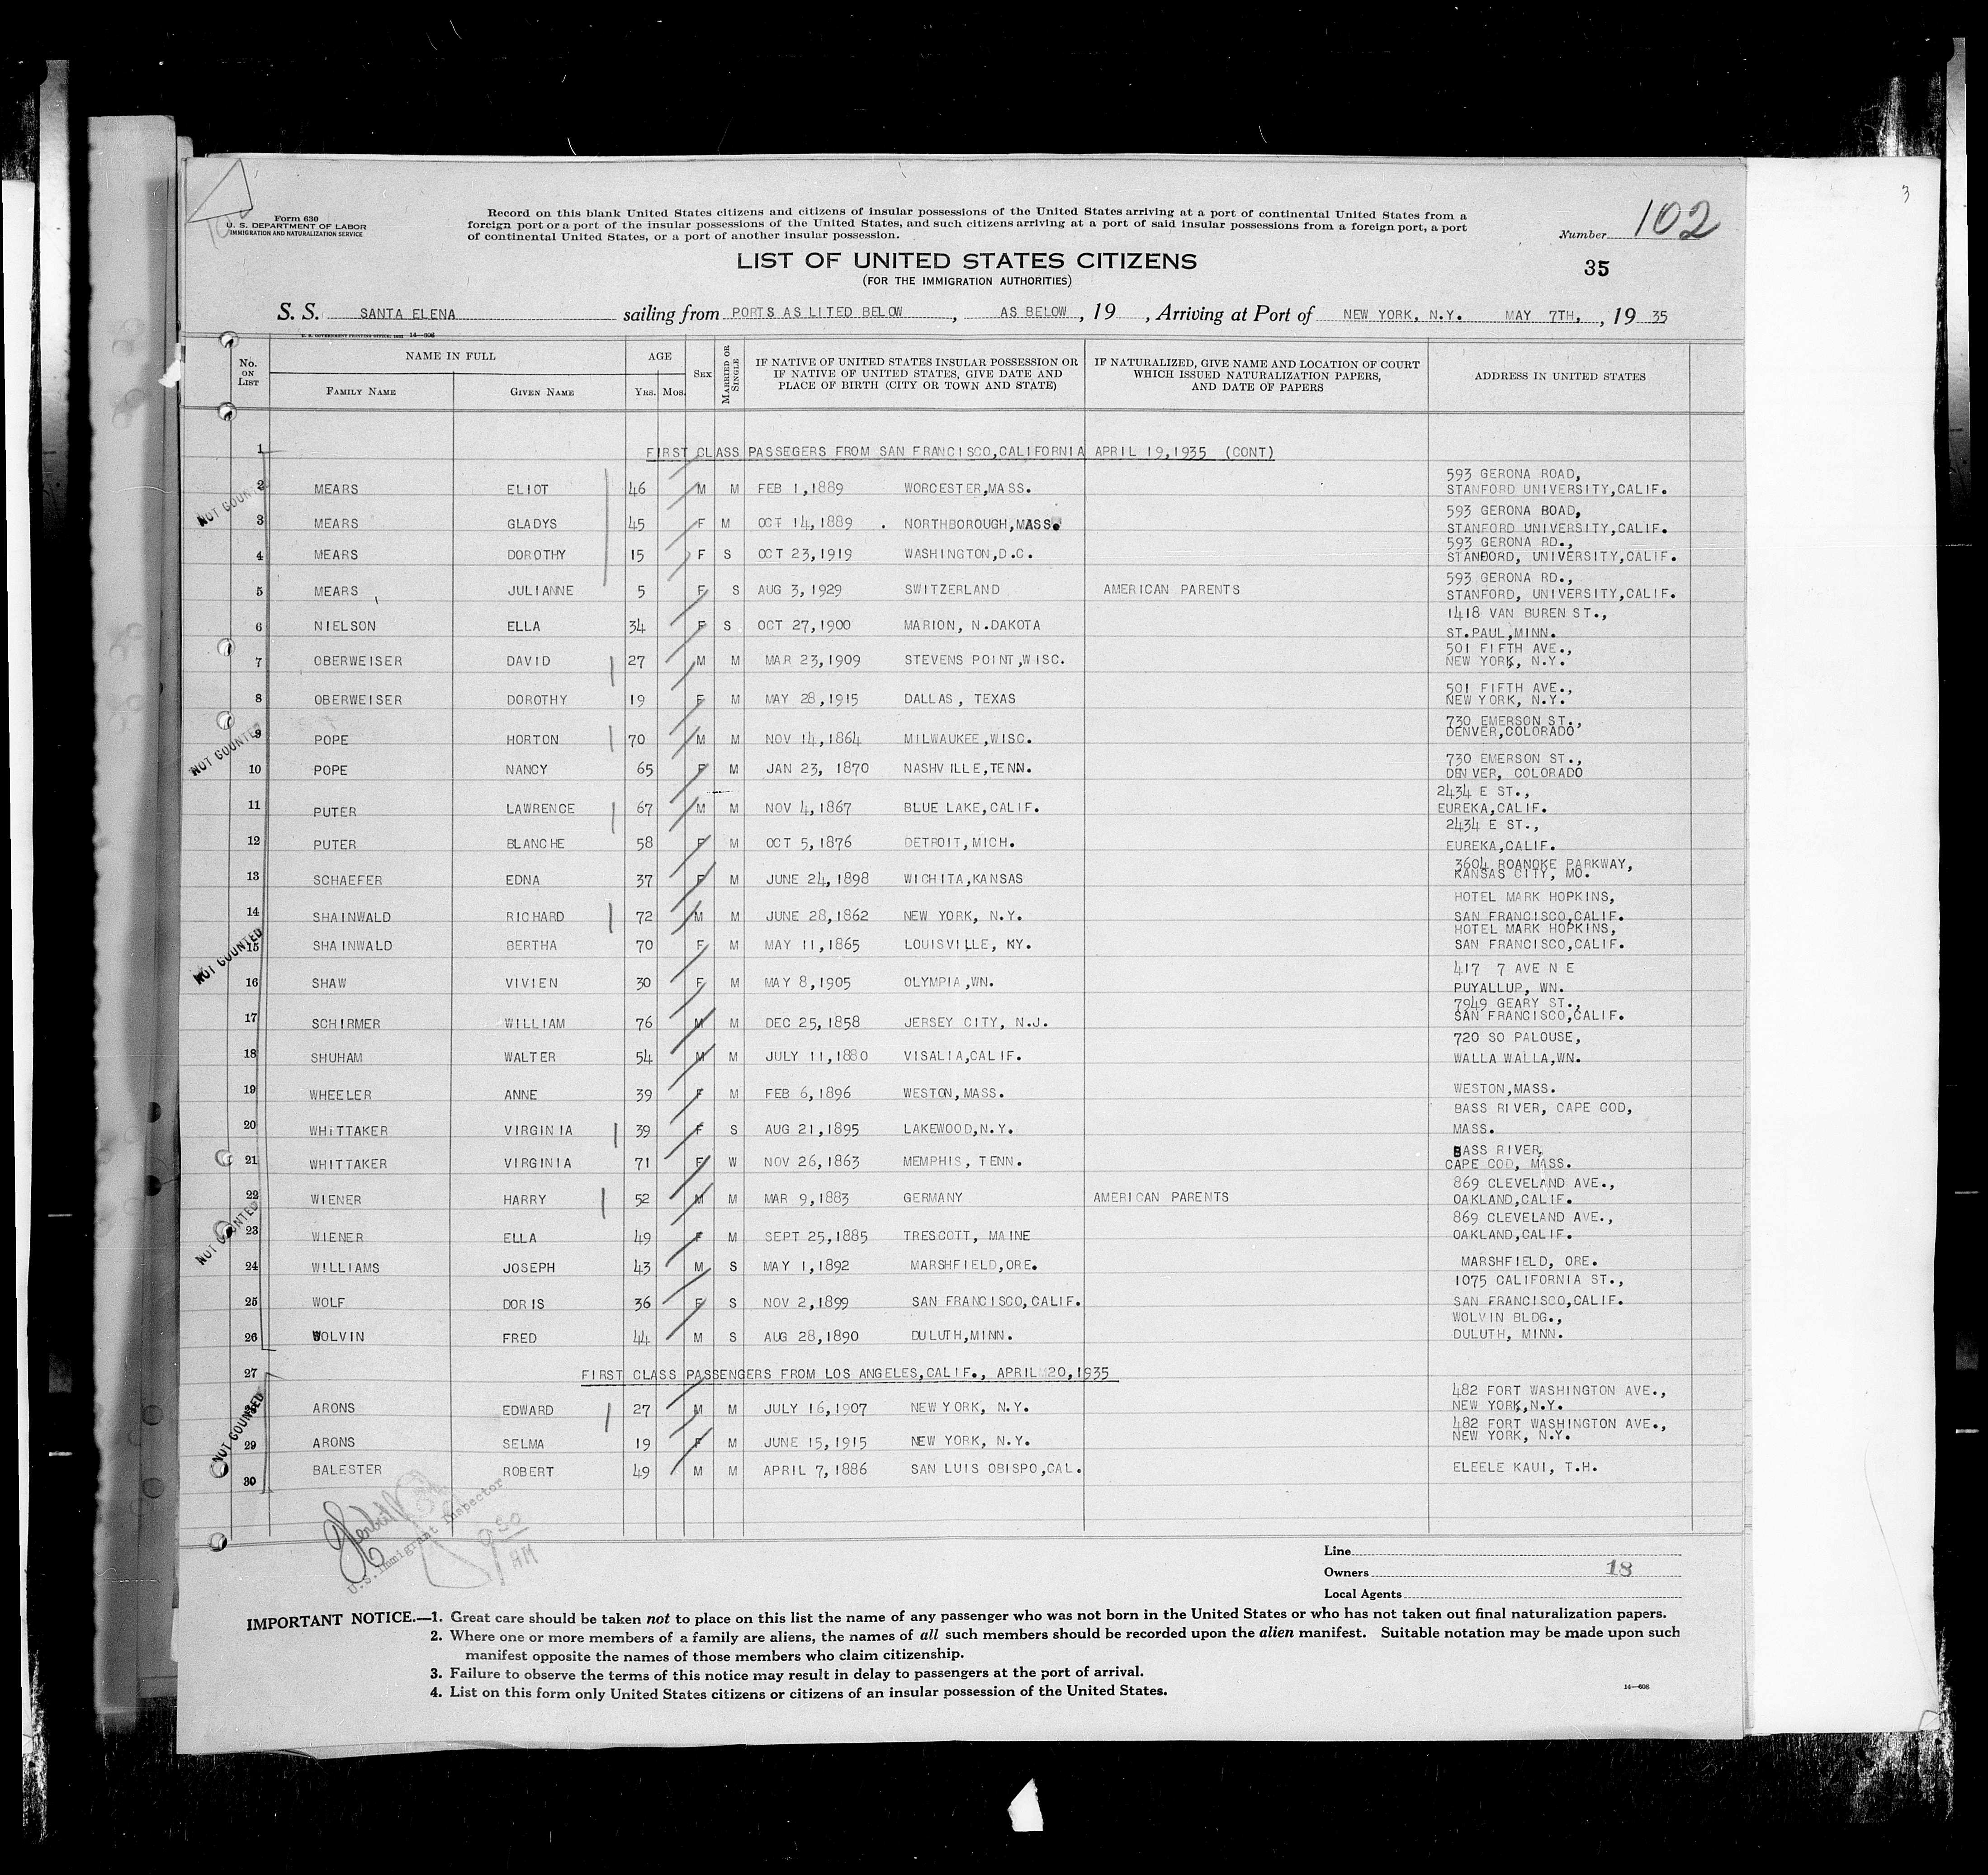 3
Form 630
U. S. DEPARTMENT OF LABOR
IMMIGRATION AND NATURALIZATION SERVICE
Record on this blank United States citizens and citizens of insular possessions of the United States arriving at a port of continental United States from a
foreign port or a port of the insular possessions of the United States, and such citizens arriving at a port of said insular possessions from a foreign port, a port
of continental United States, or a port of another insular possession.
Number 102
LIST OF UNITED STATES CITIZENS
35
(FOR THE IMMIGRATION AUTHORITIES)
S. S. SANTA ELENA sailing from PORTS AS LITED BELOW , AS BELOW , 19 , Arriving at Port of NEW YORK, N.Y. MAY 7TH, , 19 35
U. S. GOVERNMENT PRINTING OFFICE: 14—608
No. ON LIST NAME IN FULL AGE SEX MARRIED OR SINGLE IF NATIVE OF UNITED STATES INSULAR POSSESSION OR IF NATIVE OF UNITED STATES, GIVE DATE AND PLACE OF BIRTH (CITY OR TOWN AND STATE) IF NATURALIZED, GIVE NAME AND LOCATION OF COURT WHICH ISSUED NATURALIZATION PAPERS, AND DATE OF PAPERS ADDRESS IN UNITED STATES
FAMILY NAME GIVEN NAME YRS. MOS.
1 FIRST CLASS PASSEGERS FROM SAN FRANCISCO,CALIFORNIA APRIL 19,1935 (CONT)
2 MEARS ELIOT 46 M M FEB 1,1889 WORCESTER,MASS. 593 GERONA ROAD, STANFORD UNIVERSITY,CALIF.
NOT COUNTED
3 MEARS GLADYS 45 F M OCT 14,1889 . NORTHBOROUGH,MASS. 593 GERONA BOAD, STANFORD UNIVERSITY,CALIF.
4 MEARS DOROTHY 15 F S OCT 23,1919 WASHINGTON,D.C. 593 GERONA RD., STANDORD, UNIVERSITY,CALIF.
5 MEARS JULIANNE 5 F S AUG 3,1929 SWITZERLAND AMERICAN PARENTS 593 GERONA RD., STANFORD, UNIVERSITY,CALIF.
6 NIELSON ELLA 34 F S OCT 27,1900 MARION, N.DAKOTA 1418 VAN BUREN ST., ST.PAUL,MINN.
7 OBERWEISER DAVID 27 M M MAR 23,1909 STEVENS POINT,WISC. 501 FIFTH AVE., NEW YORK, N.Y.
8 OBERWEISER DOROTHY 19 F M MAY 28,1915 DALLAS, TEXAS 501 FIFTH AVE., NEW YORK, N.Y.
9 POPE HORTON 70 M M NOV 14,1864 MILWAUKEE,WISC. 730 EMERSON ST., DENVER,COLORADO
NOT COUNTED
10 POPE NANCY 65 F M JAN 23, 1870 NASHVILLE,TENN. 730 EMERSON ST., DENVER, COLORADO
11 PUTER LAWRENCE 67 M M NOV 4,1867 BLUE LAKE,CALIF. 2434 E ST., EUREKA,CALIF.
12 PUTER BLANCHE 58 F M OCT 5,1876 DETROIT,MICH. 2434 E ST., EUREKA,CALIF.
13 SCHAEFER EDNA 37 F M JUNE 24,1898 WICHITA,KANSAS 3604 ROANOKE PARKWAY, KANSAS CITY, MO.
14 SHAINWALD RICHARD 72 M M JUNE 28,1862 NEW YORK, N.Y. HOTEL MARK HOPKINS, SAN FRANCISCO,CALIF.
15 SHAINWALD BERTHA 70 F M MAY 11,1865 LOUISVILLE, NY. HOTEL MARK HOPKINS, SAN FRANCISCO,CALIF.
NOT COUNTED
16 SHAW VIVIEN 30 F M MAY 8,1905 OLYMPIA,WN. 417 7 AVE N E PUYALLUP, WN.
17 SCHIRMER WILLIAM 76 M M DEC 25,1858 JERSEY CITY, N.J. 7949 GEARY ST., SAN FRANCISCO,CALIF.
18 SHUHAM WALTER 54 M M JULY 11,1880 VISALIA,CALIF. 720 SO PALOUSE, WALLA WALLA,WN.
19 WHEELER ANNE 39 F M FEB 6,1896 WESTON,MASS. WESTON,MASS.
20 WHITTAKER VIRGINIA 39 F S AUG 21,1895 LAKEWOOD,N.Y. BASS RIVER, CAPE COD, MASS.
21 WHITTAKER VIRGINIA 71 F W NOV 26,1863 MEMPHIS, TENN. BASS RIVER, CAPE COD, MASS.
22 WIENER HARRY 52 M M MAR 9,1883 GERMANY AMERICAN PARENTS 869 CLEVELAND AVE., OAKLAND,CALIF.
NOT COUNTED
23 WIENER ELLA 49 F M SEPT 25,1885 TRESCOTT, MAINE 869 CLEVELAND AVE., OAKLAND,CALIF.
24 WILLIAMS JOSEPH 43 M S MAY 1,1892 MARSHFIELD,ORE. MARSHFIELD, ORE.
25 WOLF DORIS 36 F S NOV 2,1899 SAN FRANCISCO,CALIF. 1075 CALIFORNIA ST., SAN FRANCISCO,CALIF.
26 WOLVIN FRED 44 M S AUG 28,1890 DULUTH,MINN. WOLVIN BLDG., DULUTH, MINN.
27 FIRST CLASS PASSENGERS FROM LOS ANGELES,CALIF., APRIL 20,1935
ARONS EDWARD 27 M M JULY 16,1907 NEW YORK, N.Y. 482 FORT WASHINGTON AVE., NEW YORK,N.Y.
NOT COUNTED
29 ARONS SELMA 19 F M JUNE 15,1915 NEW YORK, N.Y. 482 FORT WASHINGTON AVE., NEW YORK, N.Y.
30 BALESTER ROBERT 49 M M APRIL 7,1886 SAN LUIS OBISPO,CAL. ELEELE KAUI, T.H.
U.S. Immigrant Inspector
9 30
AM
Line
Owners 18
Local Agents
IMPORTANT NOTICE.—1. Great care should be taken not to place on this list the name of any passenger who was not born in the United States or who has not taken out final naturalization papers.
2. Where one or more members of a family are aliens, the names of all such members should be recorded upon the alien manifest. Suitable notation may be made upon such
manifest opposite the names of those members who claim citizenship.
3. Failure to observe the terms of this notice may result in delay to passengers at the port of arrival.
4. List on this form only United States citizens or citizens of an insular possession of the United States.
14—608